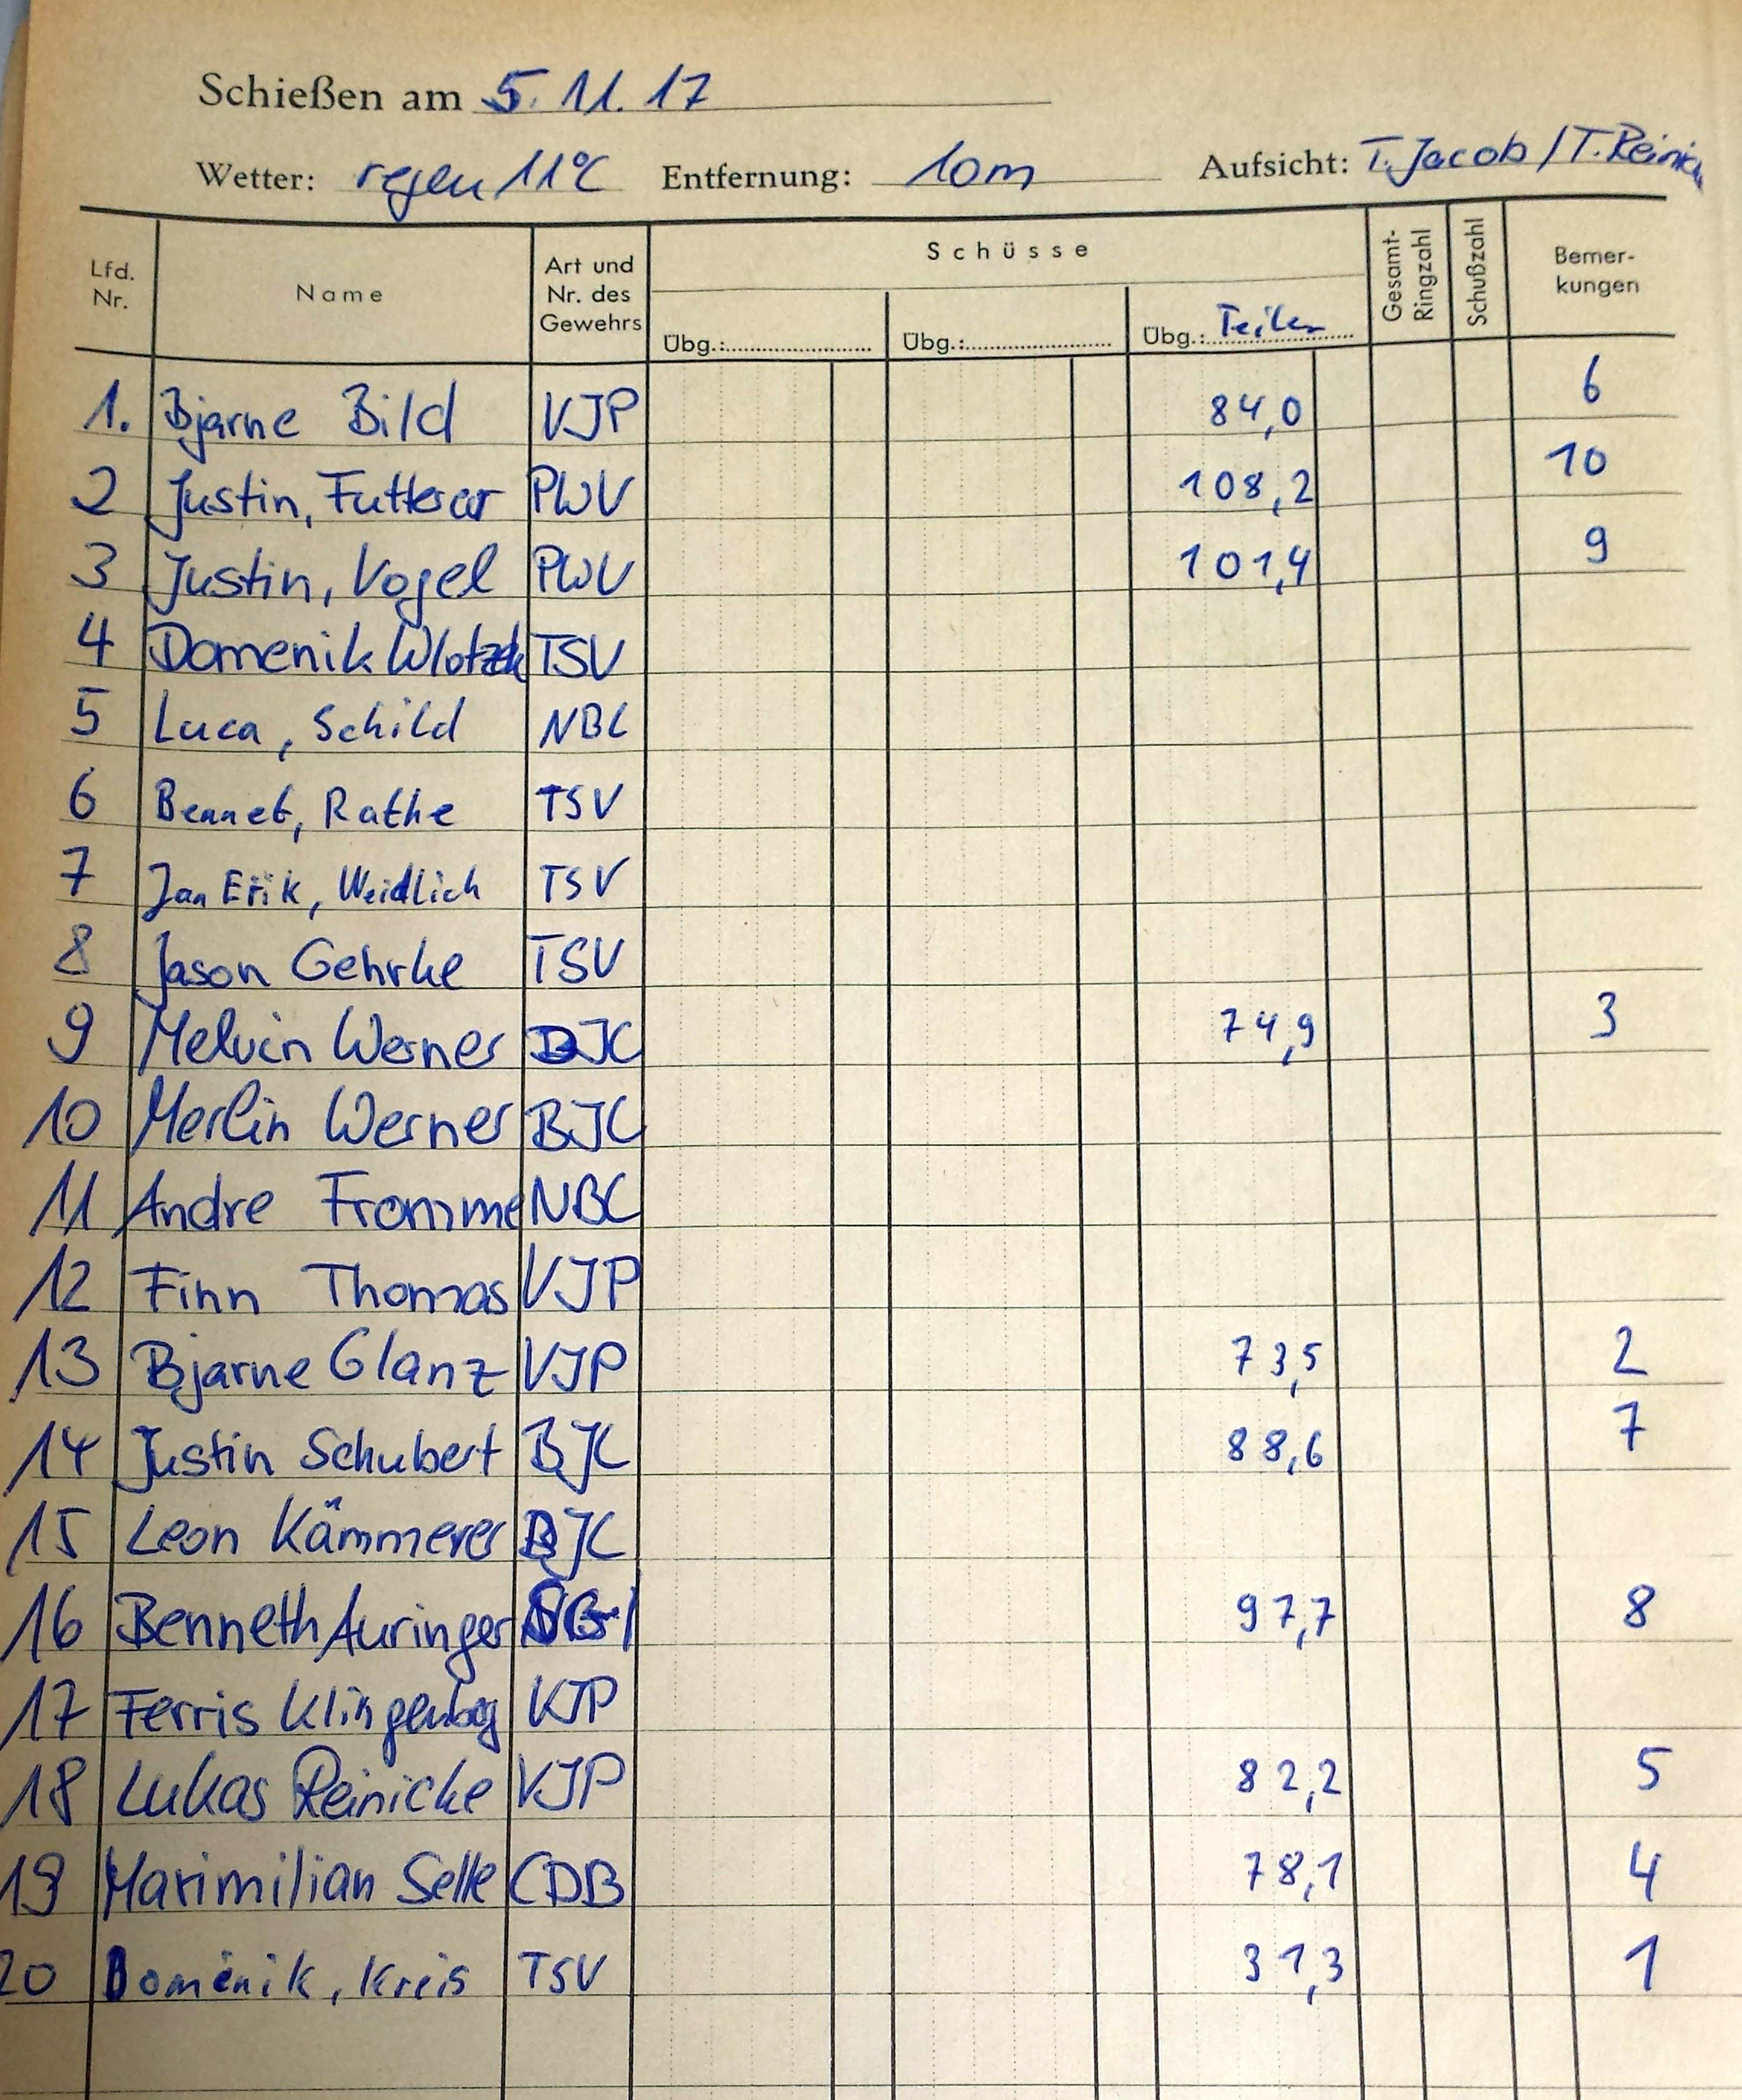 Schießen am 5.11.17
Wetter: regen 11°C Entfernung: 10m Aufsicht: T. Jacob / T. Reinick
Lfd. Nr. Name Art und Nr. des Gewehrs Schüsse Gesamt-Ringzahl Schußzahl Bemer-kungen
Übg.: Übg.: Übg.: Teiler
1. Bjarne Bild VJP 84,0 6
2 Justin, Futterer PWV 108,2 10
3 Justin, Vogel PWV 101,4 9
4 Domenik TSV
5 Luca, Schild NBC
6 Bennet, Rathe TSV
7 Jan Erik, Weidlich TSV
8 Jason Gehrke TSV
9 Melvin Werner BJC 74,9 3
10 Merlin Werner BJC
11 Andre Fromme NBC
12 Finn Thomas VJP
13 Bjarne Glanz VJP 73,5 2
14 Justin Schubert BJC 88,6 7
15 Leon Kämmerer BJC
16 Benneth Auringer 97,7 8
17 Ferris VJP
18 Lukas Reinicke VJP 82,2 5
19 Maximilian Selle CDB 78,1 4
20 Domenik, Kreis TSV 31,3 1